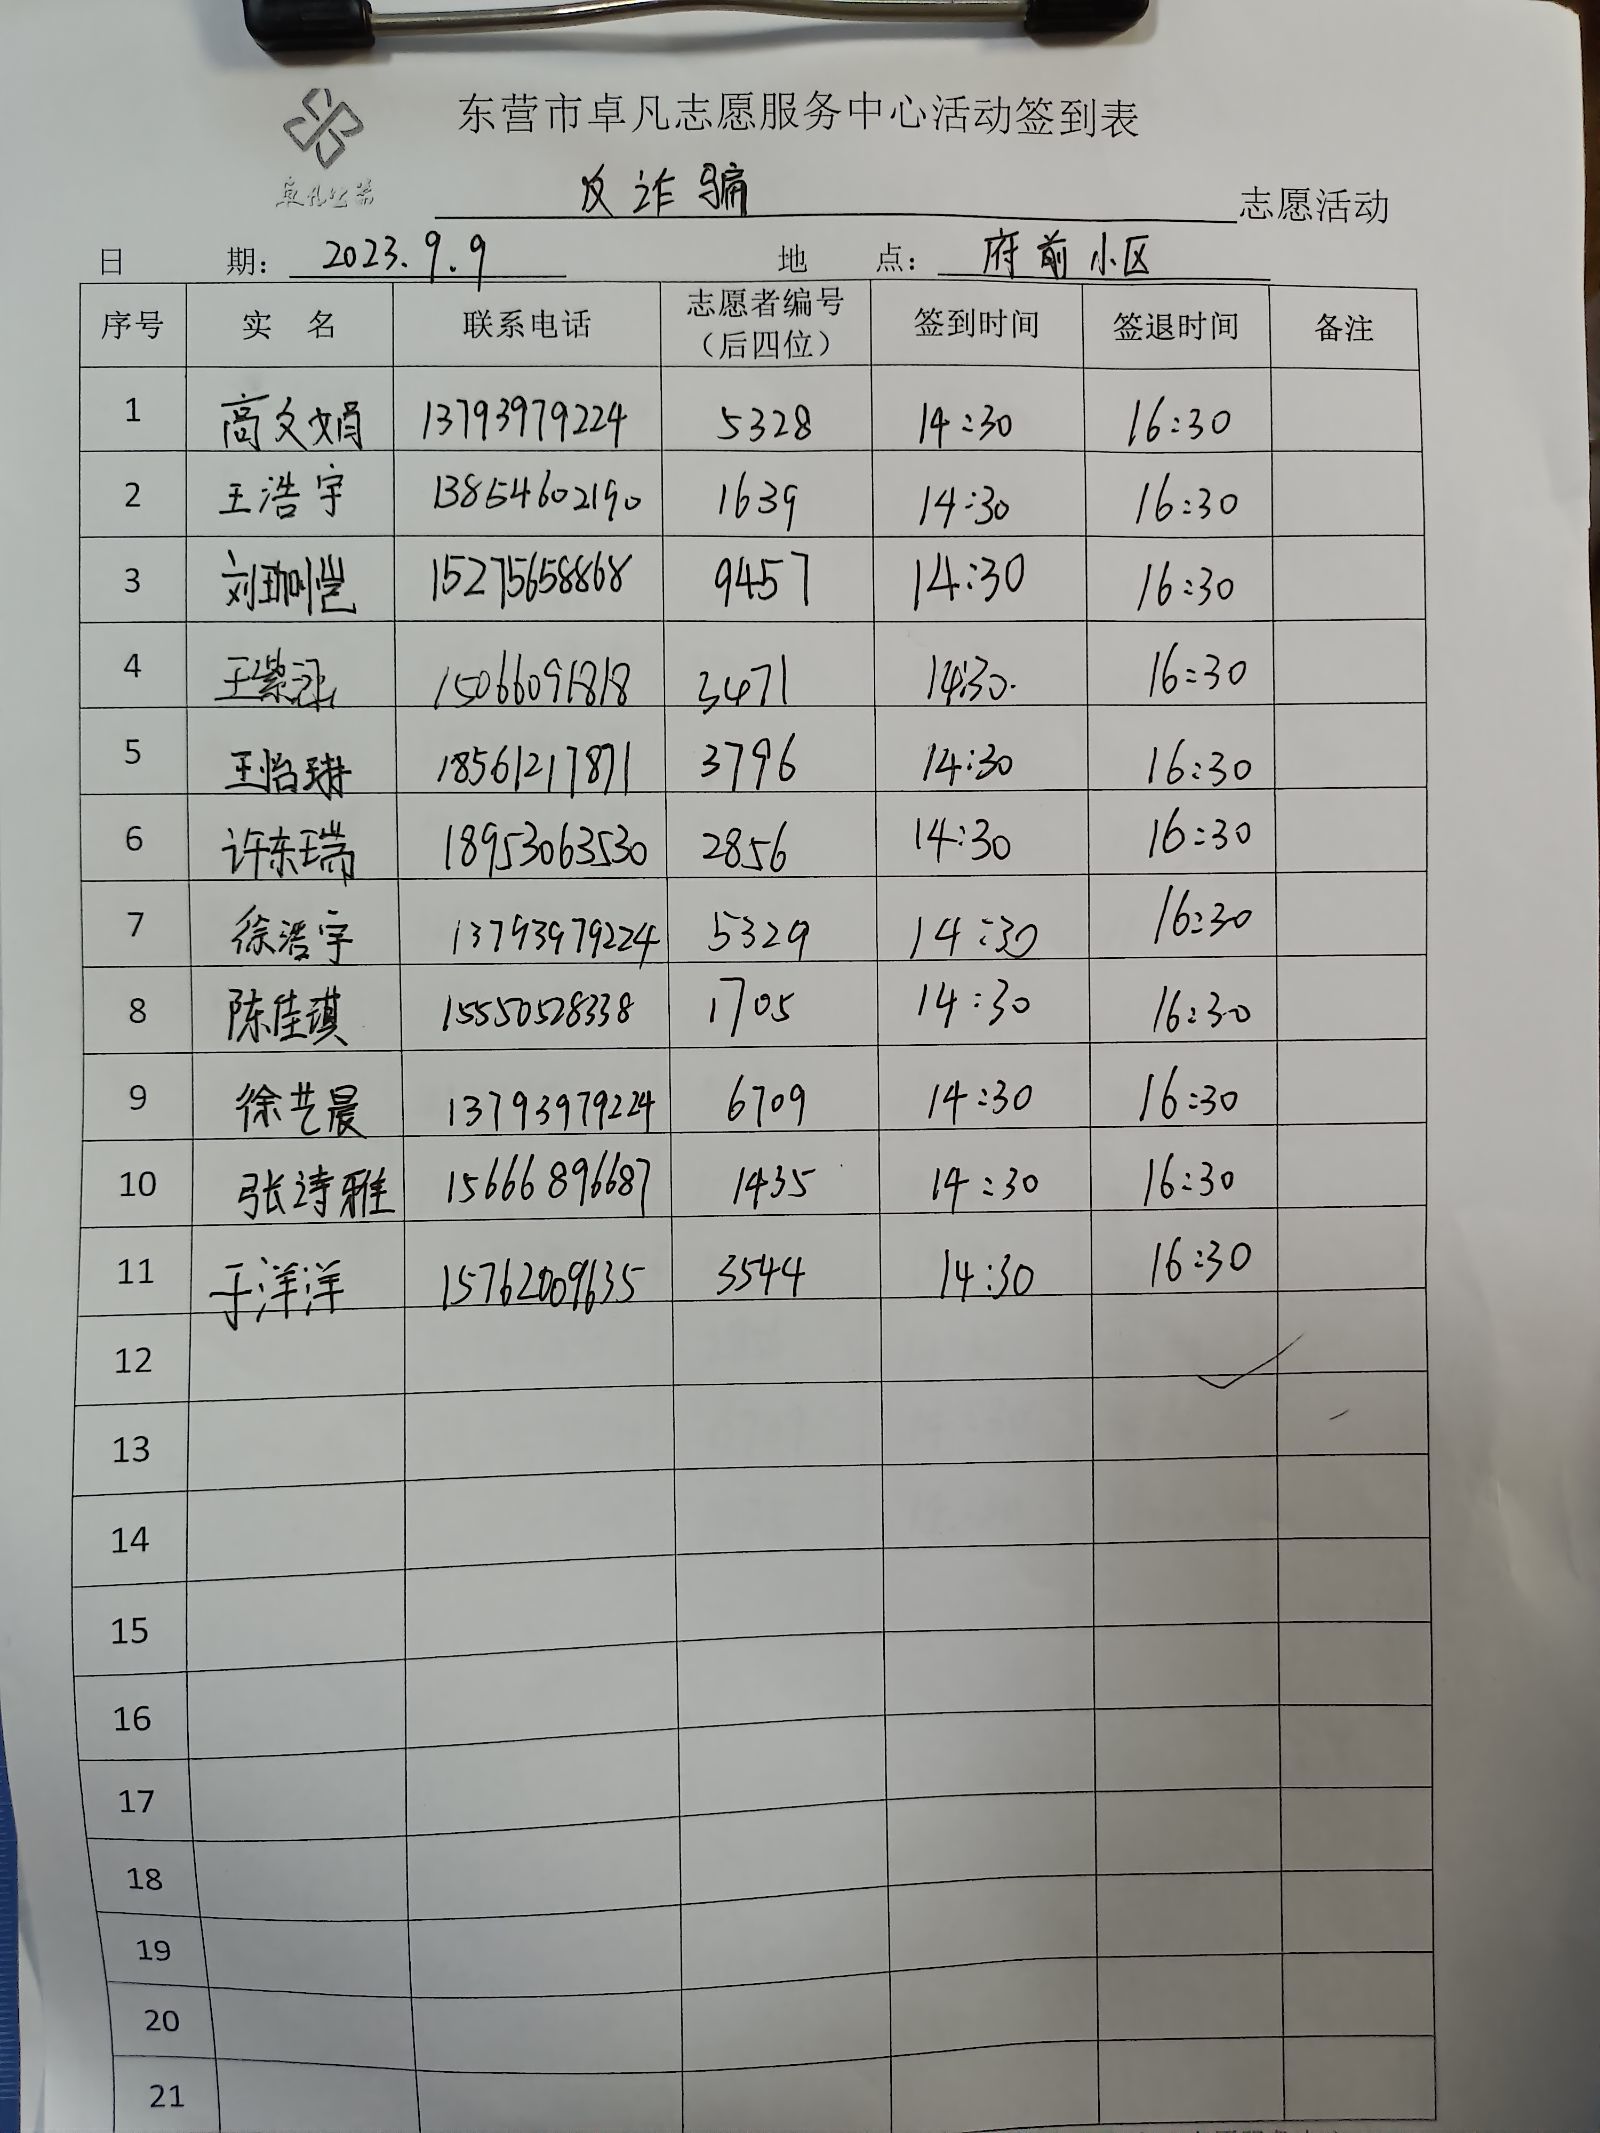 东营市卓凡志愿服务中心活动签到表
卓凡公益
反诈骗 志愿活动
日 期: 2023.9.9 地 点: 府前小区
序号 实 名 联系电话 志愿者编号（后四位） 签到时间 签退时间 备注
1 高文娟 13793979224 5328 14:30 16:30
2 王浩宇 13854602190 1639 14:30 16:30
3 刘珈恺 15275658868 9457 14:30 16:30
4 王紫 15066091818 3471 14:30 16:30
5 王怡琳 18561217871 3796 14:30 16:30
6 许东瑞 18953063530 2856 14:30 16:30
7 徐浩宇 13793979224 5329 14:30 16:30
8 陈佳琪 15550528338 1705 14:30 16:30
9 徐艺晨 13793979224 6709 14:30 16:30
10 张诗雅 15666896687 1435 14:30 16:30
11 于洋洋 15762009635 3544 14:30 16:30
12
13
14
15
16
17
18
19
20
21